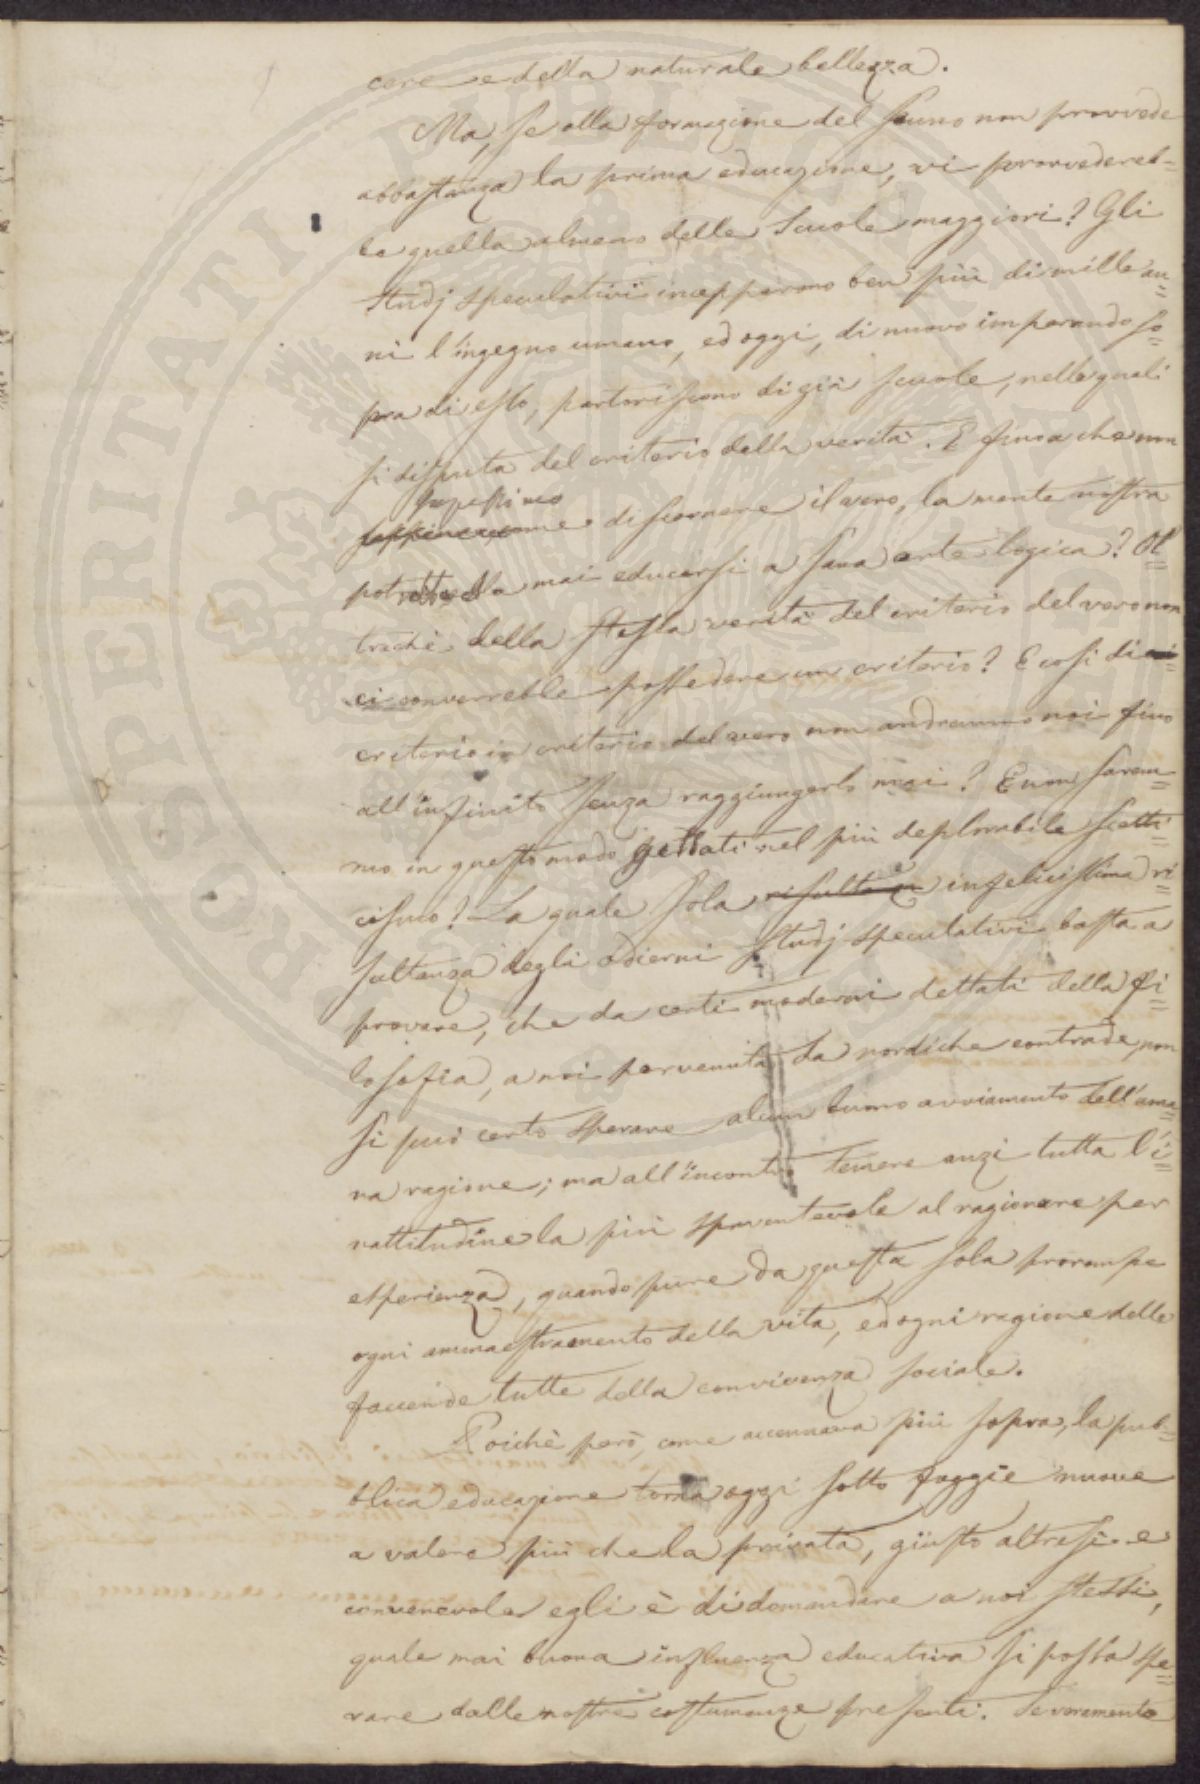 cere e della naturale bellezza.
Ma, se alla formazione del senno non provvede
abbastanza la prima educazione, vi provvedereb=
be quella almeno delle Scuole maggiori? Gli
studj speculativi incepparono ben più di mille an=
ni l'ingegno umano, ed oggi, di nuovo imperando so=
pra di esso, partoriscono di già scuole, nelle quali
si disputa del criterio della verità. E fino a che non
sapessimo
sappiamo come discernere il vero, la mente nostra
potrebbe mai educarsi a sana arte logica? Ol=
trechè della stessa verità del criterio del vero non
ci converrebbe possedere un criterio? E così di
criterio in criterio del vero non andremmo noi fino
all'infinito senza raggiungerlo mai? E non sarem=
mo in questo modo gettati nel più deplorabile scetti=
cismo? La quale sola risultanza infelicissima ri=
sultanza degli odierni studj speculativi basta a
provare, che da certi moderni dettati della fi=
losofia, a noi pervenuta da nordiche contrade, non
si può certo sperare alcun buono avviamento dell'uma=
na ragione; ma all'incontro temere anzi tutta l'i=
nattitudine la più spaventevole al ragionare per
esperienza, quando pure da questa sola prorompe
ogni ammaestramento della vita, ed ogni ragione delle
faccende tutte della convivenza sociale.
Poichè però, come accennava più sopra, la pub=
blica educazione torna oggi sotto foggie nuove
a valere più che la privata, giusto altresì e
convenevole egli è di domandare a noi stessi,
quale mai buona influenza educativa si possa spe=
rare dalle nostre costumanze presenti. Se veramente